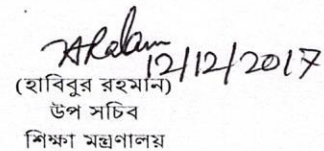 12/12/2017
(হাবিবুর রহমান)
উপ সচিব
শিক্ষা মন্ত্রণালয়